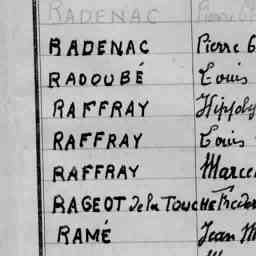 RADENAC
RADENAC Pierre G
RADOUBÉ Louis
RAFFRAY Hippoly
RAFFRAY Louis
RAFFRAY Marcel
RAGEOT de la TOUCHE Frédér
RAMÉ Jean M